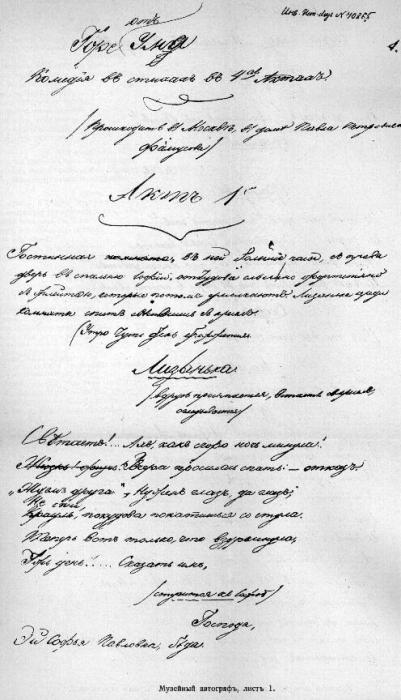 1.
отъ
Горе Ума
Комедія въ стихахъ въ 4хъ Актахъ.
(Происходитъ въ Москвѣ, въ домѣ Павла Петровича
Фамусова)
Актъ 1й
Гостинная комната, въ ней большіе часы, съ права
дверь въ спальню Софіи, откудова слышно фортепіяно
которыя потомъ умолкаютъ. Лизанька среди
комнаты спитъ
(Утро чуть день
Лизанька
(вдругъ просыпается, встаетъ съ креселъ,
оглядывается)
Свѣтаетъ!... Ахъ, какъ скоро ночь минула!
Вчера просилась спать – отказъ.
„Ждемъ друга“, Нуженъ глазъ, да глазъ;
Не спи,
покудова покатишься со стула.
Теперь вотъ только, что вздремнула,
Ужъ день!..... Сказать имъ,
(стучится къ Софіи)
Господа,
Эй Софья Павловна, бѣда.
Музейный автографъ, листъ 1.